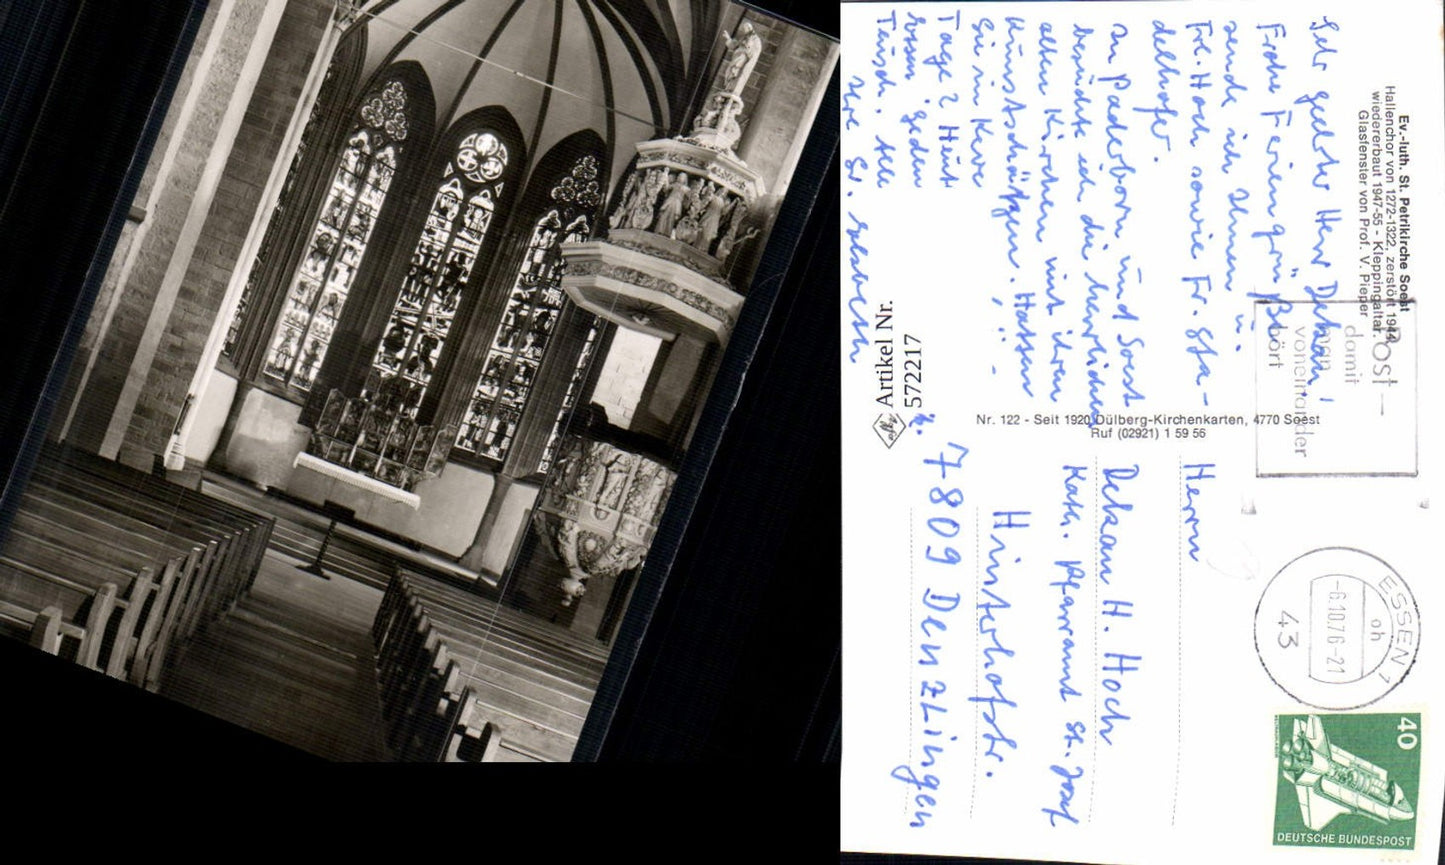 Ev.-luth. St. Petrikirche Soest
Hallenchor von 1272-1322, zerstört 1944
wiedererbaut 1947-55 - Kleppingaltar.
Glasfenster von Prof. V. Pieper
Sehr geehrter Herr Dekan!
Frohe Feriengrüße
sende ich Ihnen u.
Frl. Hoch sowie Fr. Sta-
delhofer.
In Paderborn und Soest
besuchte ich die herrlichen
alten Kirchen mit ihren
Kunstschätzen. Hatten
Sie in
Tage?
jeden
Ihre
Post —
damit
man
voneinander
hört
Nr. 122 - Seit 1920 Dülberg-Kirchenkarten, 4770 Soest
Ruf (02921) 1 59 56
Artikel Nr.
572217
Herrn
Dekan H. Hoch
Kath. Pfarramt St. Josef
Hinterhofstr.
7809 Denzlingen
ESSEN 1
oh
-6.10.76-21
43
40
DEUTSCHE BUNDESPOST